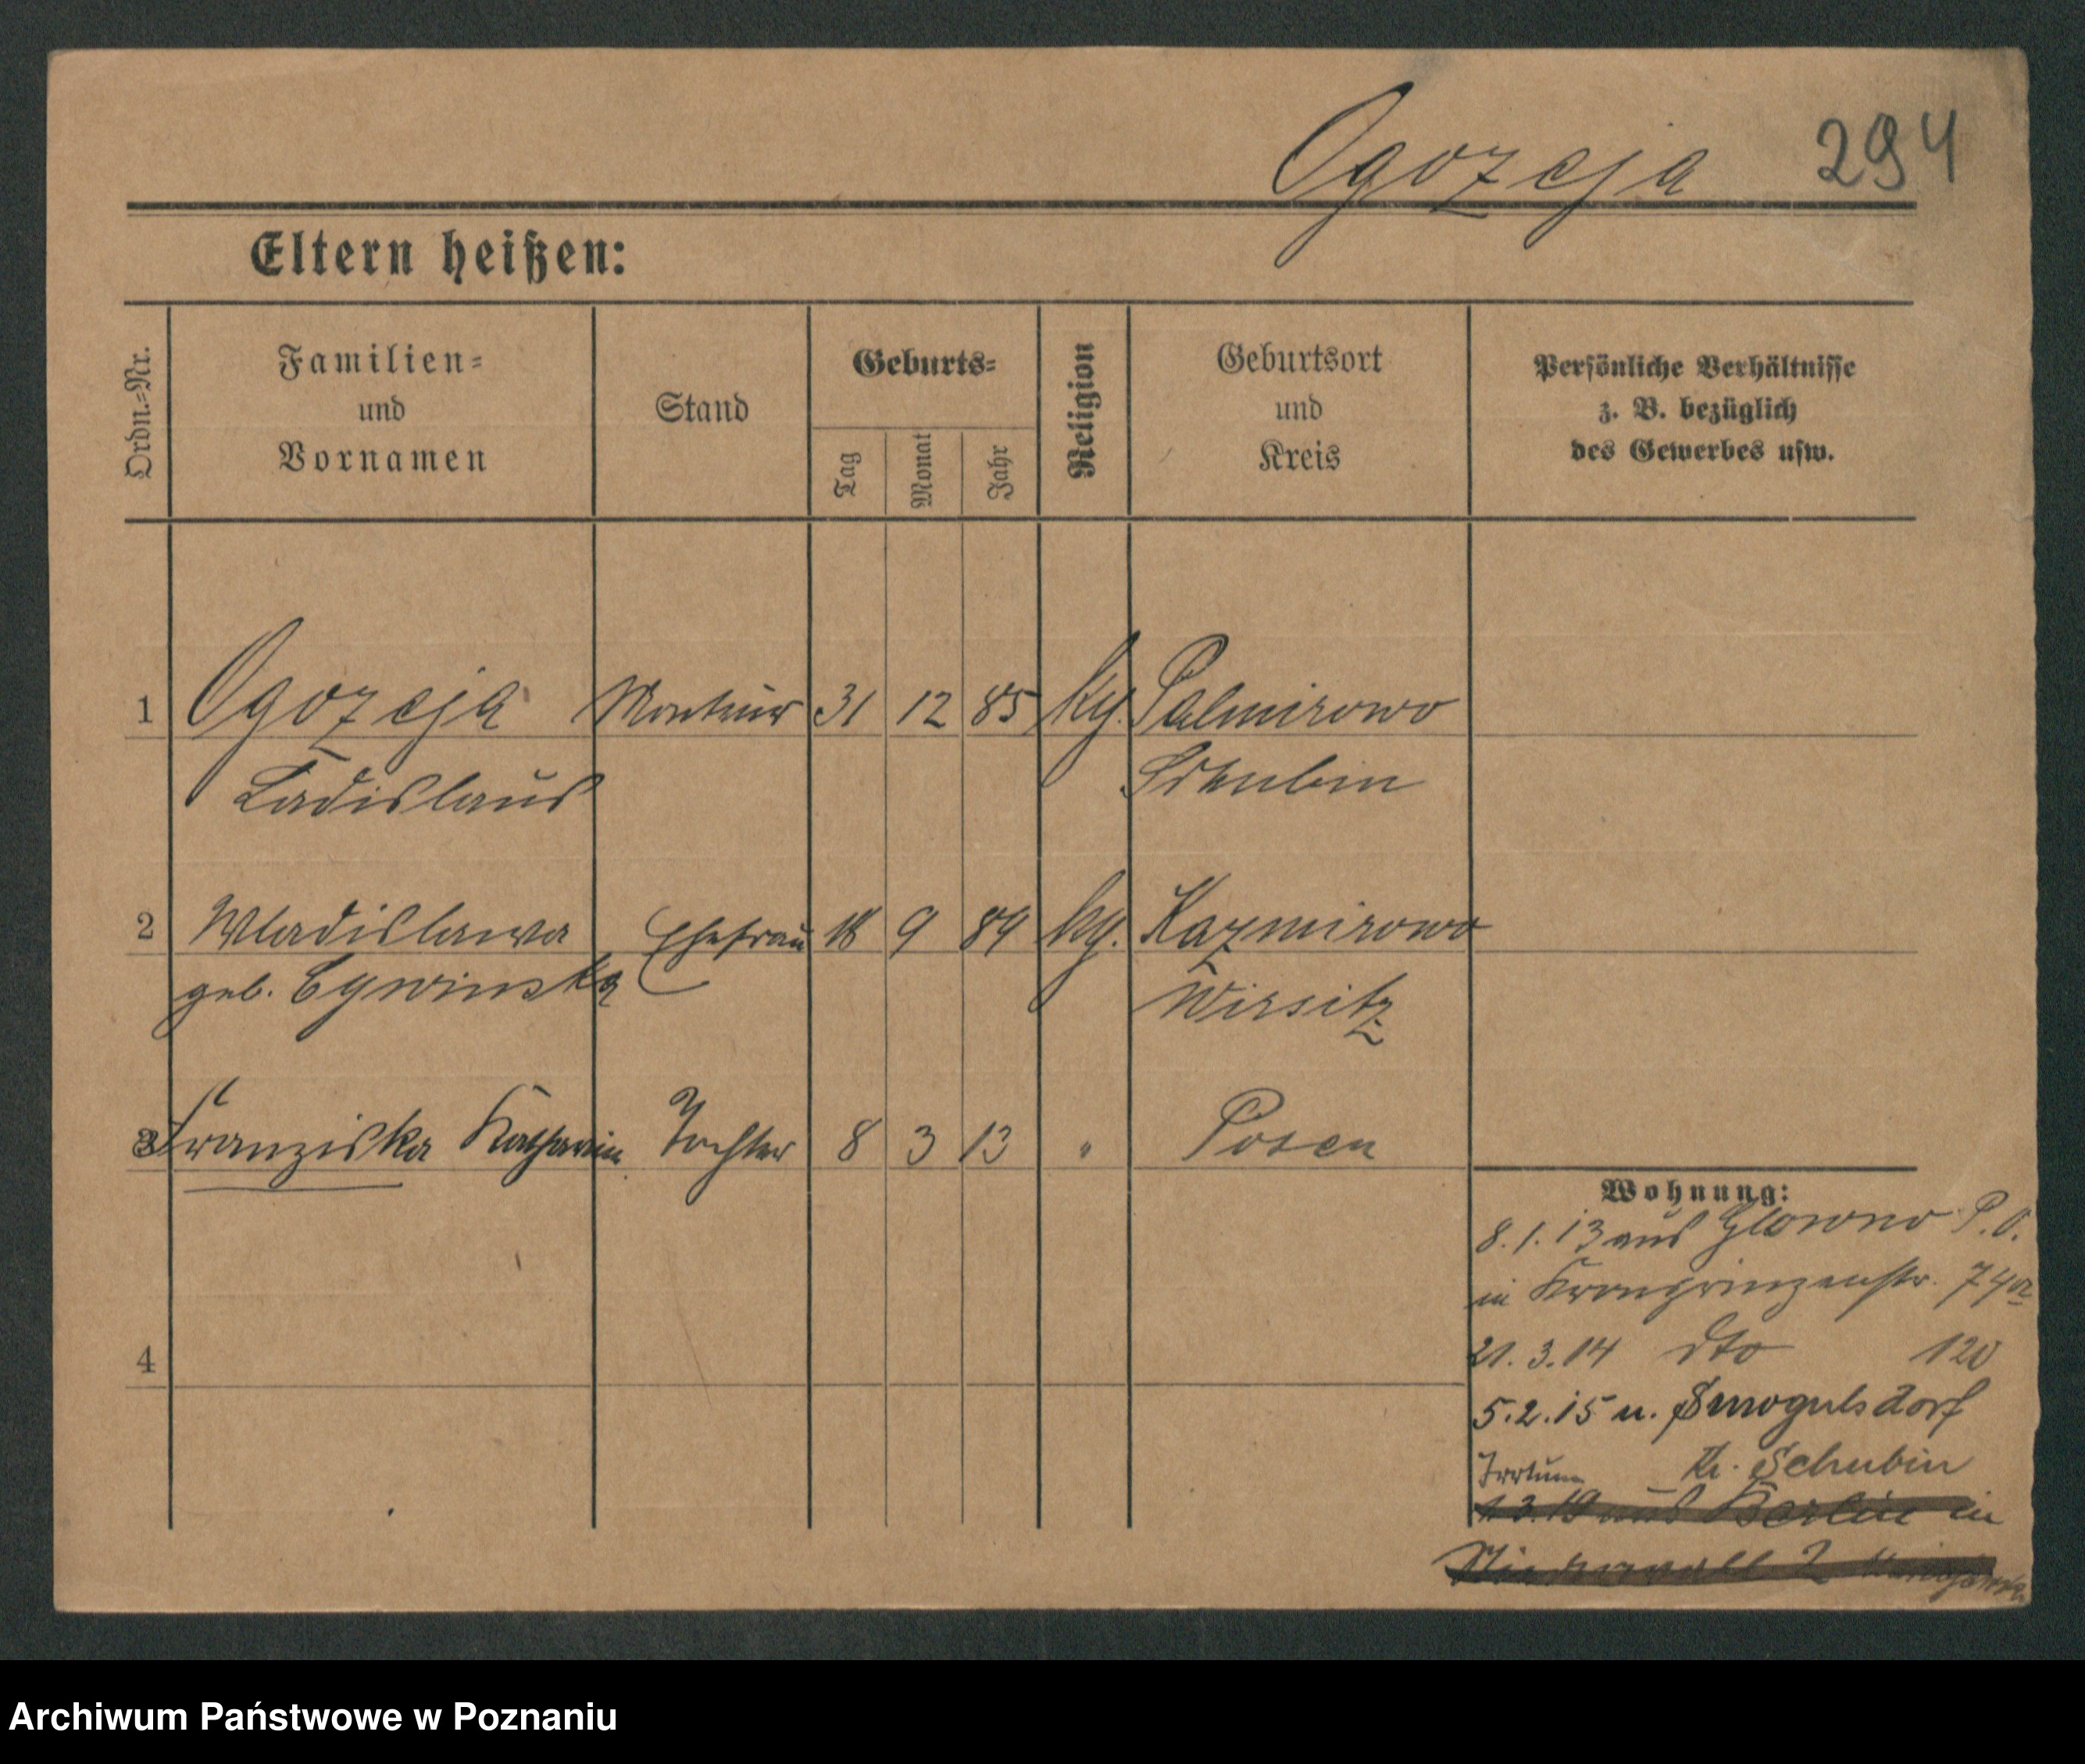 Ogozeja 294
Eltern heißen:
Ordn.-Nr.
Familien-
und
Vornamen
Stand
Geburts-
Tag
Monat
Jahr
Religion
Geburtsort
und
Kreis
Persönliche Verhältnisse
z. B. bezüglich
des Gewerbes usw.
1 Ogozeja Monteur 31 12 85 kg. Palmirowo
Ladislaus Schubin
2 Wladislawa Ehefrau 18 9 89 kg. Kazmirowo
geb. Cywinska Wirsitz
3 Franziska Katharina Tochter 8 3 13 " Posen
4
Wohnung:
8.1.13 aus Glowno P. O.
in Kronprinzenstr. 74
21.3.14 dto 120
5.2.15 n. Smogulsdorf
Irrtum Kr. Schubin
1.3.19 aus Berlin in
Archiwum Państwowe w Poznaniu